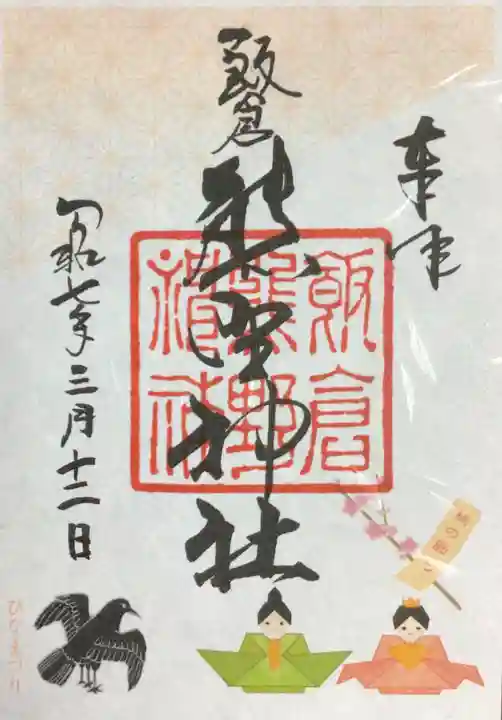 奉拝
飯倉
熊野神社
飯倉
熊野
神社
令和七年三月十二日
桃の節
ひなまつり